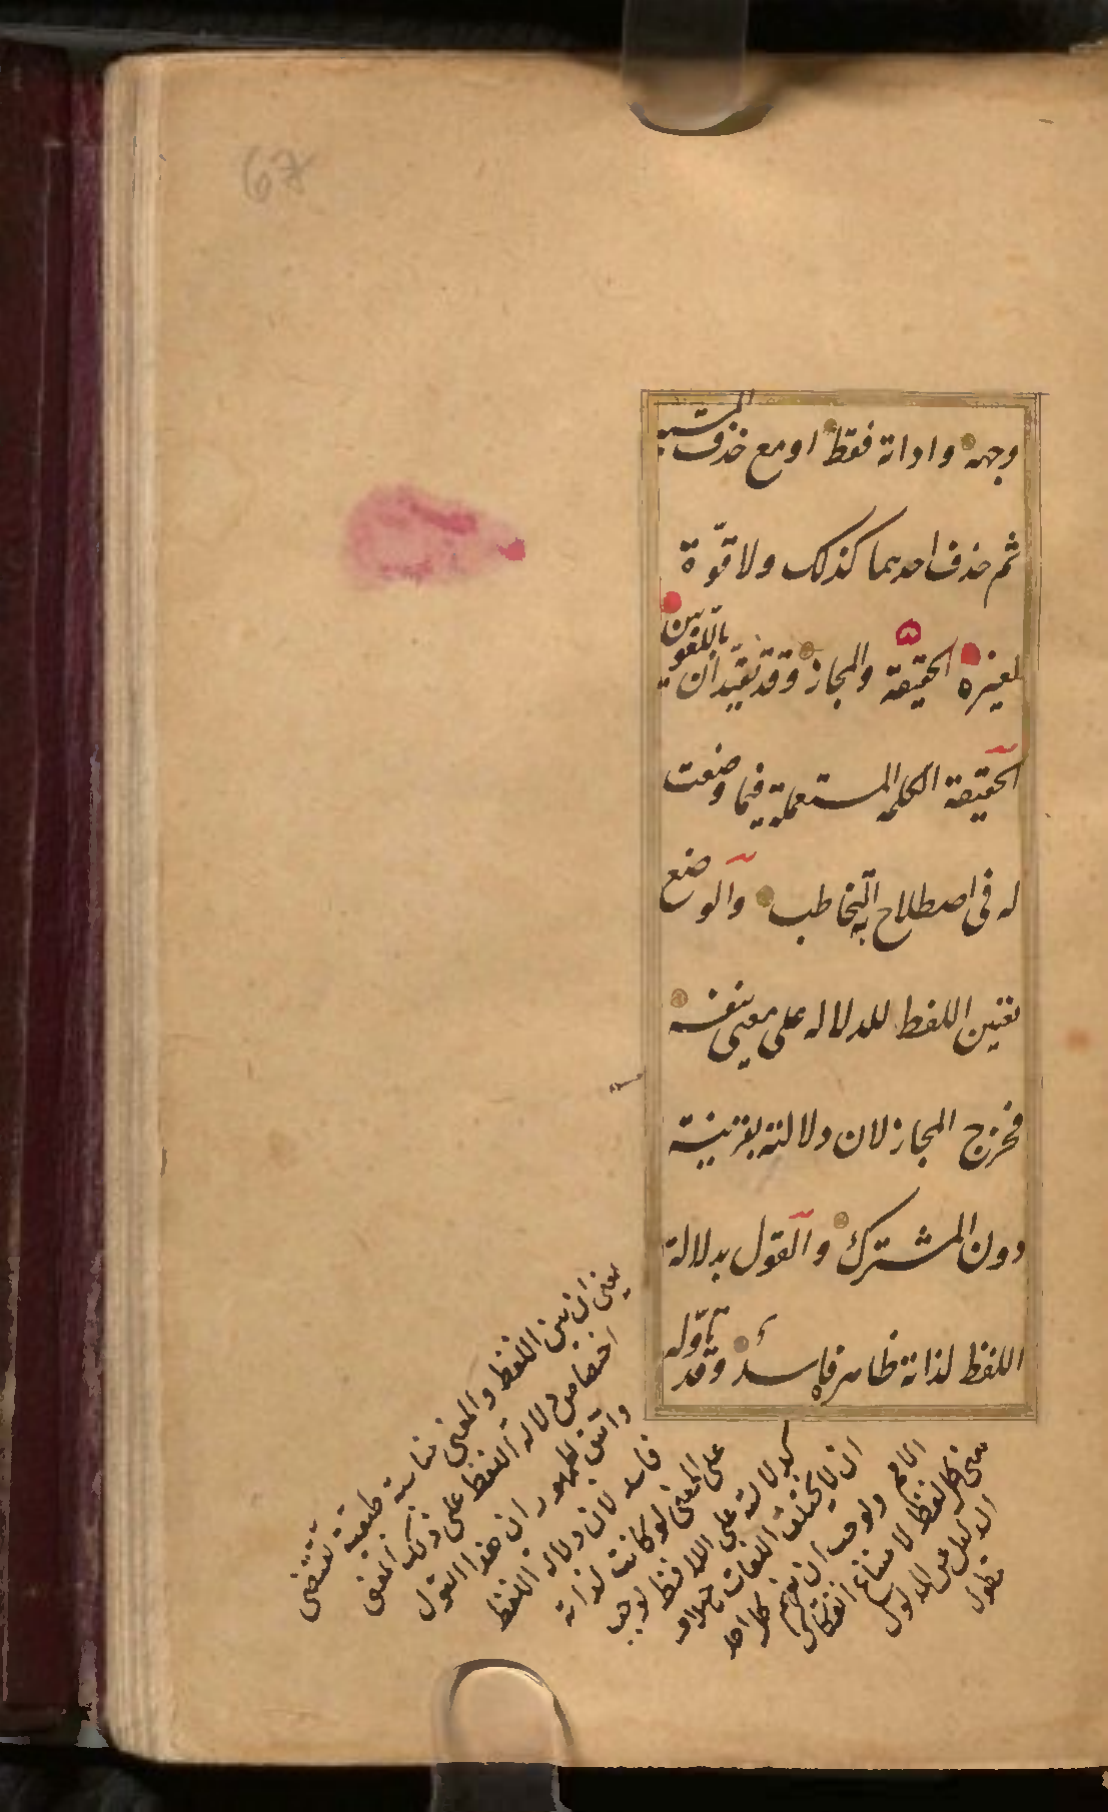 67
وجهه واداته فقط او مع حذف المشبه
ثم حذف احدهما كذلك ولا قوّة
لغيره الحقيقة والمجاز وقد يقيّدان باللغويين
الحقيقة الكلمة المستعملة فيما وضعت
له فى اصطلاح به التخاطب والوضع
تعيين اللفظ للدلالة على معنى بنفسه
فخرج المجاز لان دلالته بقرينة
دون المشترك والقول بدلالة
اللفظ لذاته ظاهره فاسد وقد تأوّله
يعنى ان بين اللفظ والمعنى مناسبة طبيعية تقتضى
اختصاص دلالة اللفظ على ذلك المعنى
واتفق الجمهور ان هذا القول
فاسد لان دلالة اللفظ
على المعنى لو كانت لذاته
كدلالته على اللافظ لوجب
ان لا يختلف اللغات باختلاف
الامم ولوجب ان يفهم كل احد
معنى كل لفظ لامتناع انفكاك
الدليل عن المدلول
مطول